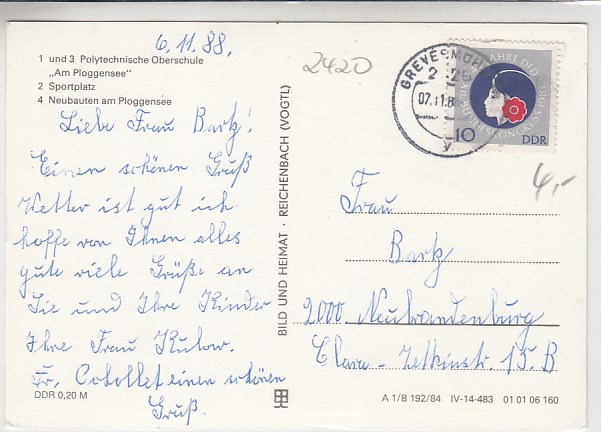 6.11.88.
1 und 3 Polytechnische Oberschule
„Am Ploggensee"
2 Sportplatz
4 Neubauten am Ploggensee
Liebe Frau Bartz!
Einen schönen Gruß
Wetter ist gut ich
hoffe von Ihnen alles
gute viele Grüße an
Sie und Ihre Kinder
Ihre Frau Kulow.
Fr. einen schönen
Gruß.
DDR 0,20 M
BILD UND HEIMAT · REICHENBACH (VOGTL)
2420
GREVESMÜH
2 - 26
07.11.8
y
10
DDR
4,-
Frau
Bartz
2000 Neubrandenburg
Clara-Zetkinstr 15.B
A 1/B 192/84 IV-14-483 01 01 06 160